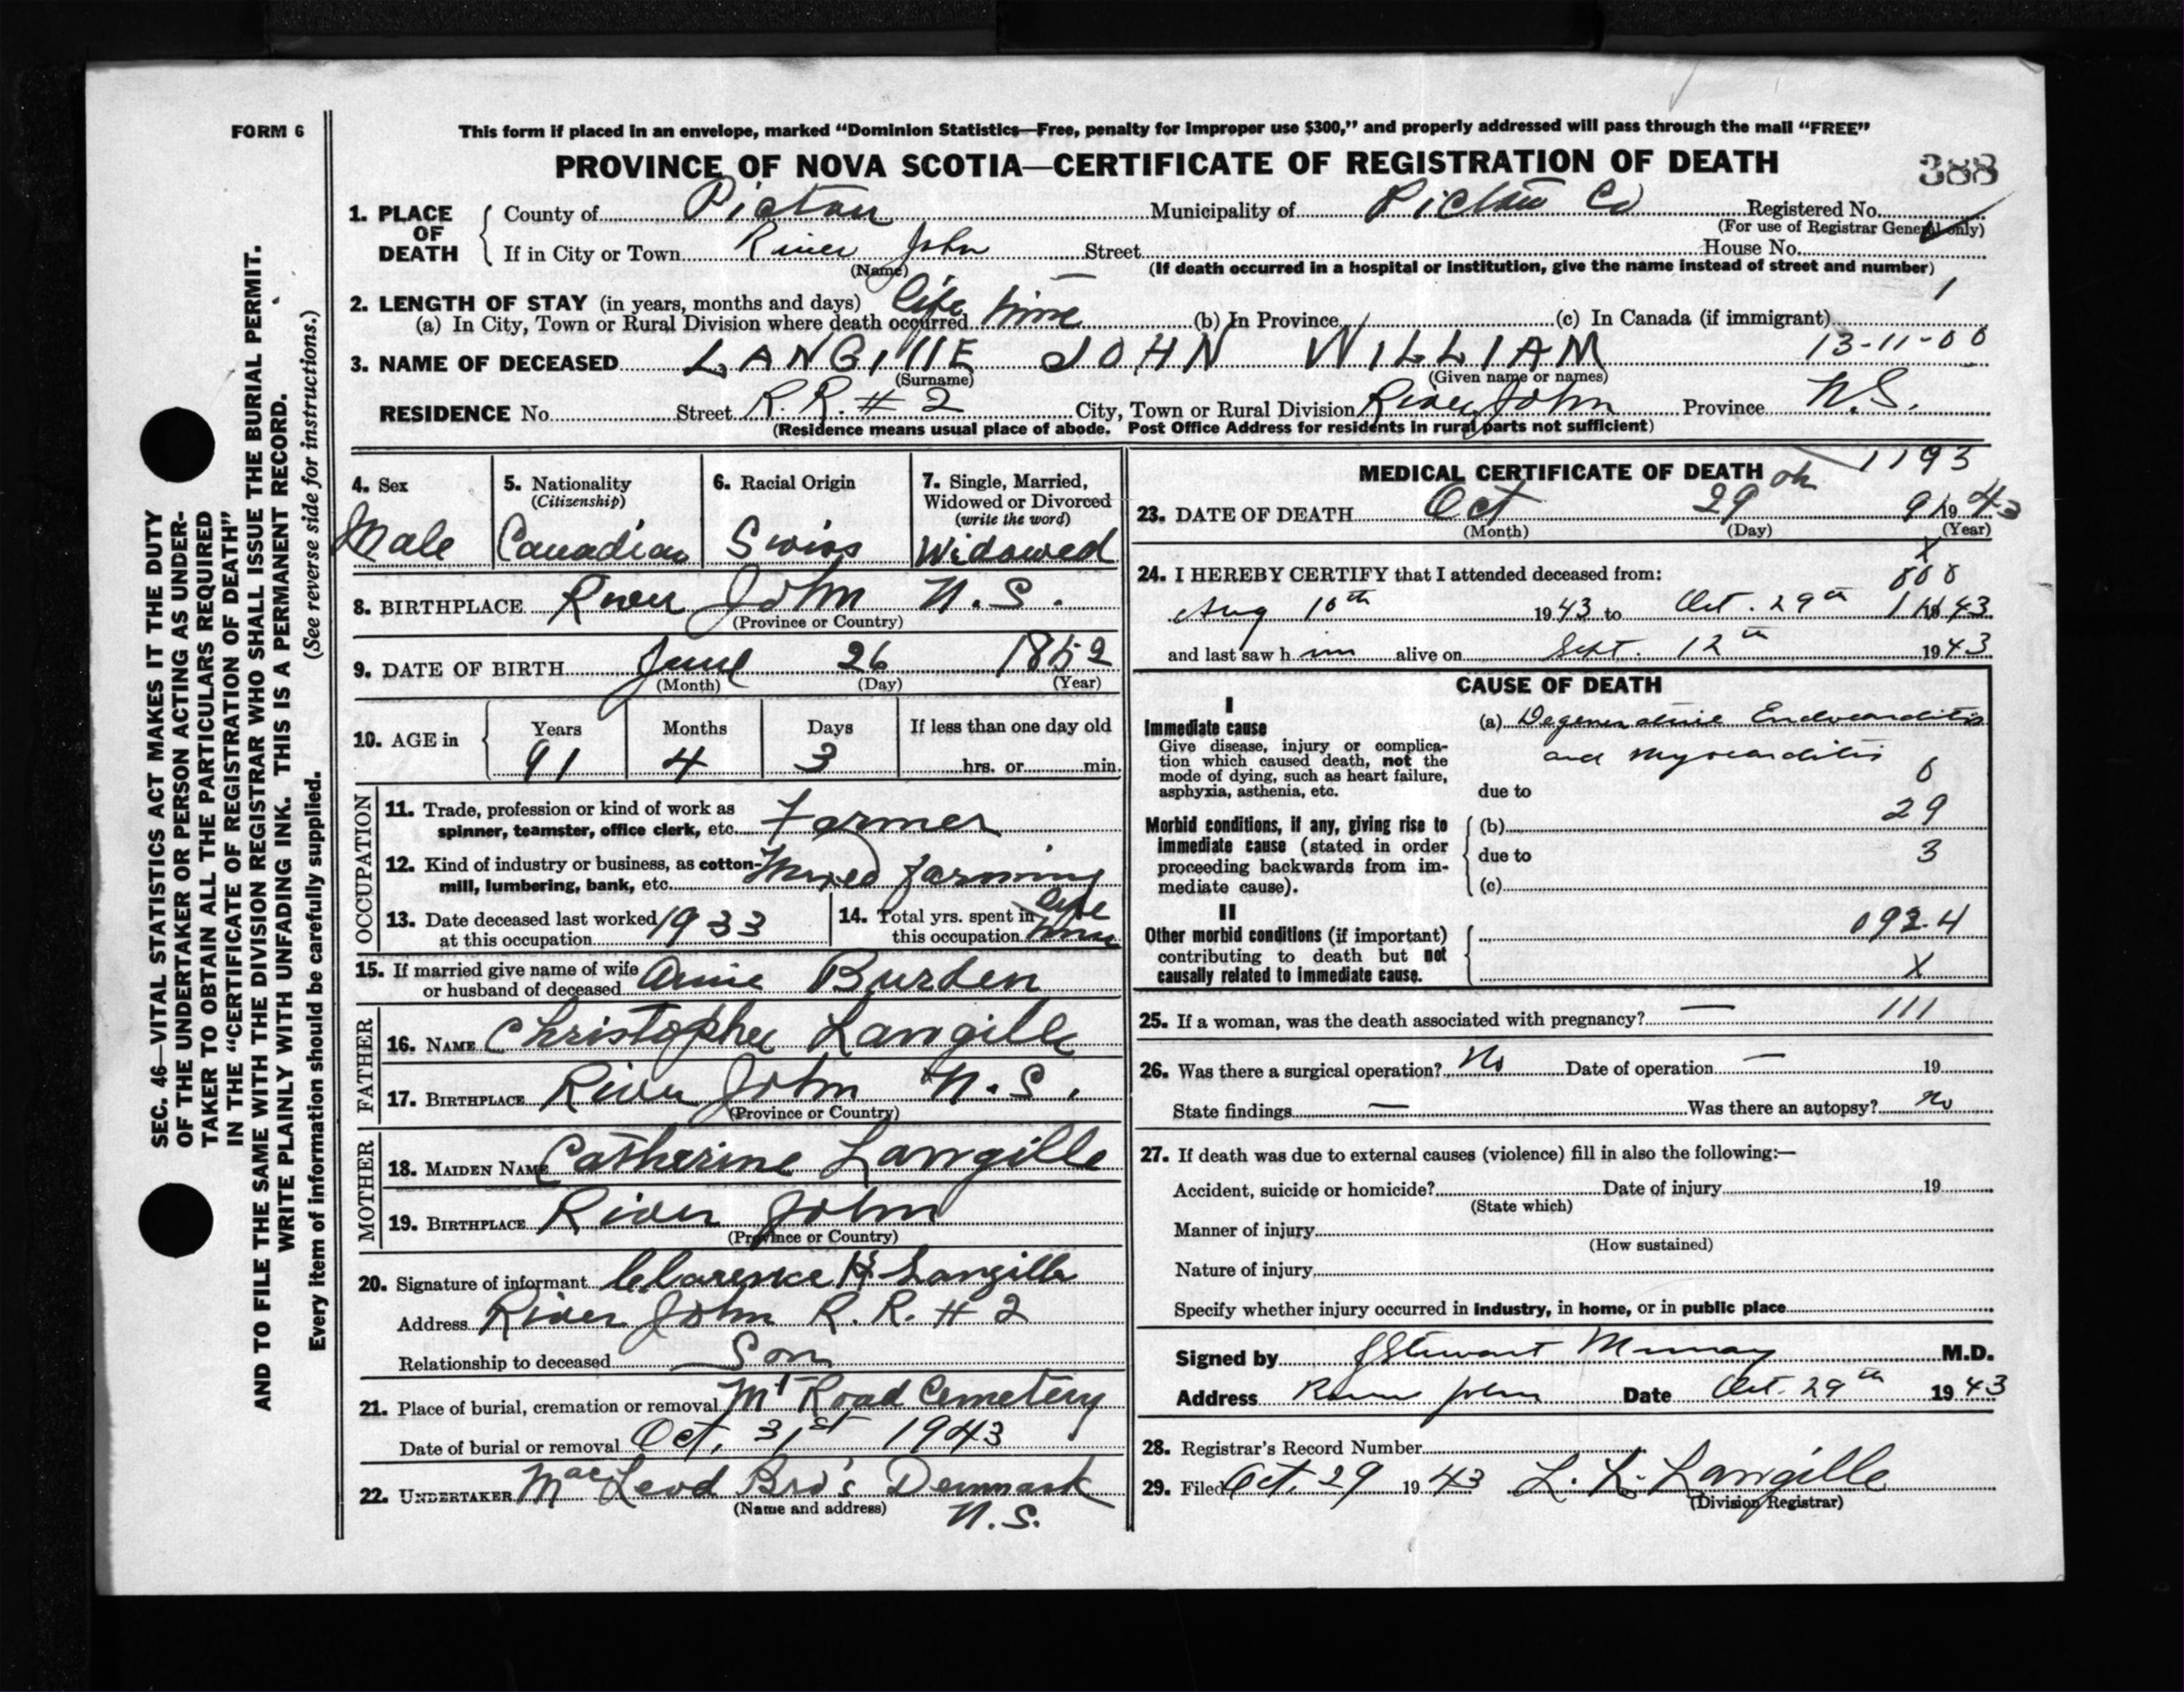 FORM 6
This form if placed in an envelope, marked “Dominion Statistics—Free, penalty for improper use $300,” and properly addressed will pass through the mail “FREE”
PROVINCE OF NOVA SCOTIA—CERTIFICATE OF REGISTRATION OF DEATH
388
1. PLACE OF DEATH
County of Pictou Municipality of Pictou Co Registered No.
(For use of Registrar General only)
If in City or Town River John Street House No.
(Name) (If death occurred in a hospital or institution, give the name instead of street and number)
2. LENGTH OF STAY (in years, months and days) life time
(a) In City, Town or Rural Division where death occurred (b) In Province (c) In Canada (if immigrant) 1
3. NAME OF DECEASED LANGILLE JOHN WILLIAM 13-11-00
(Surname) (Given name or names)
RESIDENCE No. Street R.R. # 2 City, Town or Rural Division River John Province N.S.
(Residence means usual place of abode. Post Office Address for residents in rural parts not sufficient)
4. Sex
Male
5. Nationality
(Citizenship)
Canadian
6. Racial Origin
Swiss
7. Single, Married, Widowed or Divorced
(write the word)
Widowed
8. BIRTHPLACE River John N.S.
(Province or Country)
9. DATE OF BIRTH June 26 1852
(Month) (Day) (Year)
10. AGE in
Years Months Days If less than one day old
91 4 3 hrs. or min.
OCCUPATION
11. Trade, profession or kind of work as
spinner, teamster, office clerk, etc. Farmer
12. Kind of industry or business, as cotton-
mill, lumbering, bank, etc. Mixed farming
13. Date deceased last worked
at this occupation 1933
14. Total yrs. spent in
this occupation life time
15. If married give name of wife
or husband of deceased Annie Burden
FATHER
16. NAME Christopher Langille
17. BIRTHPLACE River John N.S.
(Province or Country)
MOTHER
18. MAIDEN NAME Catherine Langille
19. BIRTHPLACE River John
(Province or Country)
20. Signature of informant Clarence H. Langille
Address River John R.R. # 2
Relationship to deceased Son
21. Place of burial, cremation or removal Mt Road Cemetery
Date of burial or removal Oct. 31st 1943
22. UNDERTAKER MacLeod Bro's Denmark
(Name and address) N.S.
MEDICAL CERTIFICATE OF DEATH 1193
23. DATE OF DEATH Oct 29th 1943
(Month) (Day) (Year)
24. I HEREBY CERTIFY that I attended deceased from:
Aug 10th 1943 to Oct. 29th 1943
and last saw him alive on Sept. 12th 1943
CAUSE OF DEATH
I
Immediate cause
Give disease, injury or complica-
tion which caused death, not the
mode of dying, such as heart failure,
asphyxia, asthenia, etc.
(a) Degenerative Endocarditis
and Myocarditis
due to
Morbid conditions, if any, giving rise to
immediate cause (stated in order
proceeding backwards from im-
mediate cause).
(b) 29
due to 3
(c)
II
Other morbid conditions (if important)
contributing to death but not
causally related to immediate cause.
092.4
X
25. If a woman, was the death associated with pregnancy? — 111
26. Was there a surgical operation? No Date of operation — 19
State findings — Was there an autopsy? No
27. If death was due to external causes (violence) fill in also the following:—
Accident, suicide or homicide? Date of injury 19
(State which)
Manner of injury
(How sustained)
Nature of injury
Specify whether injury occurred in industry, in home, or in public place
Signed by J Stewart Murray M.D.
Address River John Date Oct. 29th 1943
28. Registrar's Record Number
29. Filed Oct. 29 1943 Langille
(Division Registrar)
SEC. 46—VITAL STATISTICS ACT MAKES IT THE DUTY
OF THE UNDERTAKER OR PERSON ACTING AS UNDER-
TAKER TO OBTAIN ALL THE PARTICULARS REQUIRED
IN THE “CERTIFICATE OF REGISTRATION OF DEATH”
AND TO FILE THE SAME WITH THE DIVISION REGISTRAR WHO SHALL ISSUE THE BURIAL PERMIT.
WRITE PLAINLY WITH UNFADING INK. THIS IS A PERMANENT RECORD.
Every item of information should be carefully supplied. (See reverse side for instructions.)